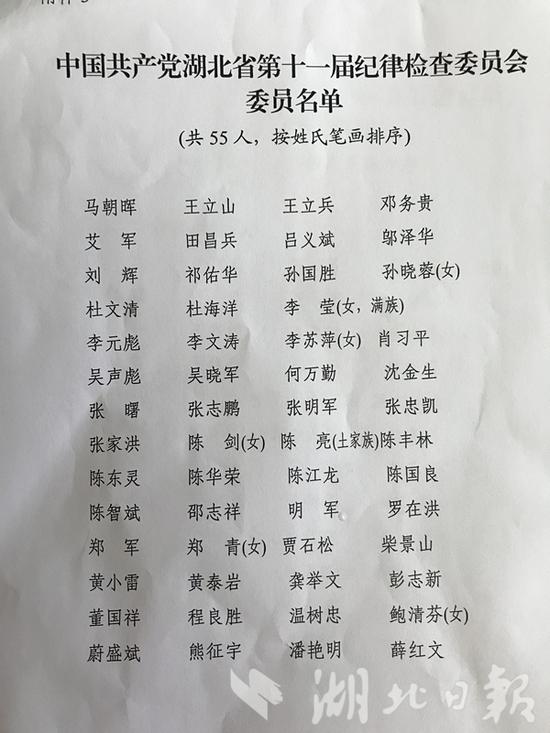 附件3
中国共产党湖北省第十一届纪律检查委员会
委员名单
(共 55 人，按姓氏笔画排序)
马朝晖 王立山 王立兵 邓务贵
艾 军 田昌兵 吕义斌 邬泽华
刘 辉 祁佑华 孙国胜 孙晓蓉(女)
杜文清 杜海洋 李 莹(女，满族)
李元彪 李文涛 李苏萍(女) 肖习平
吴声彪 吴晓军 何万勤 沈金生
张 曙 张志鹏 张明军 张忠凯
张家洪 陈 剑(女) 陈 亮(土家族) 陈丰林
陈东灵 陈华荣 陈江龙 陈国良
陈智斌 邵志祥 明 军 罗在洪
郑 军 郑 青(女) 贾石松 柴景山
黄小雷 黄泰岩 龚举文 彭志新
董国祥 程良胜 温树忠 鲍清芬(女)
蔚盛斌 熊征宇 潘艳明 薛红文
湖北日報